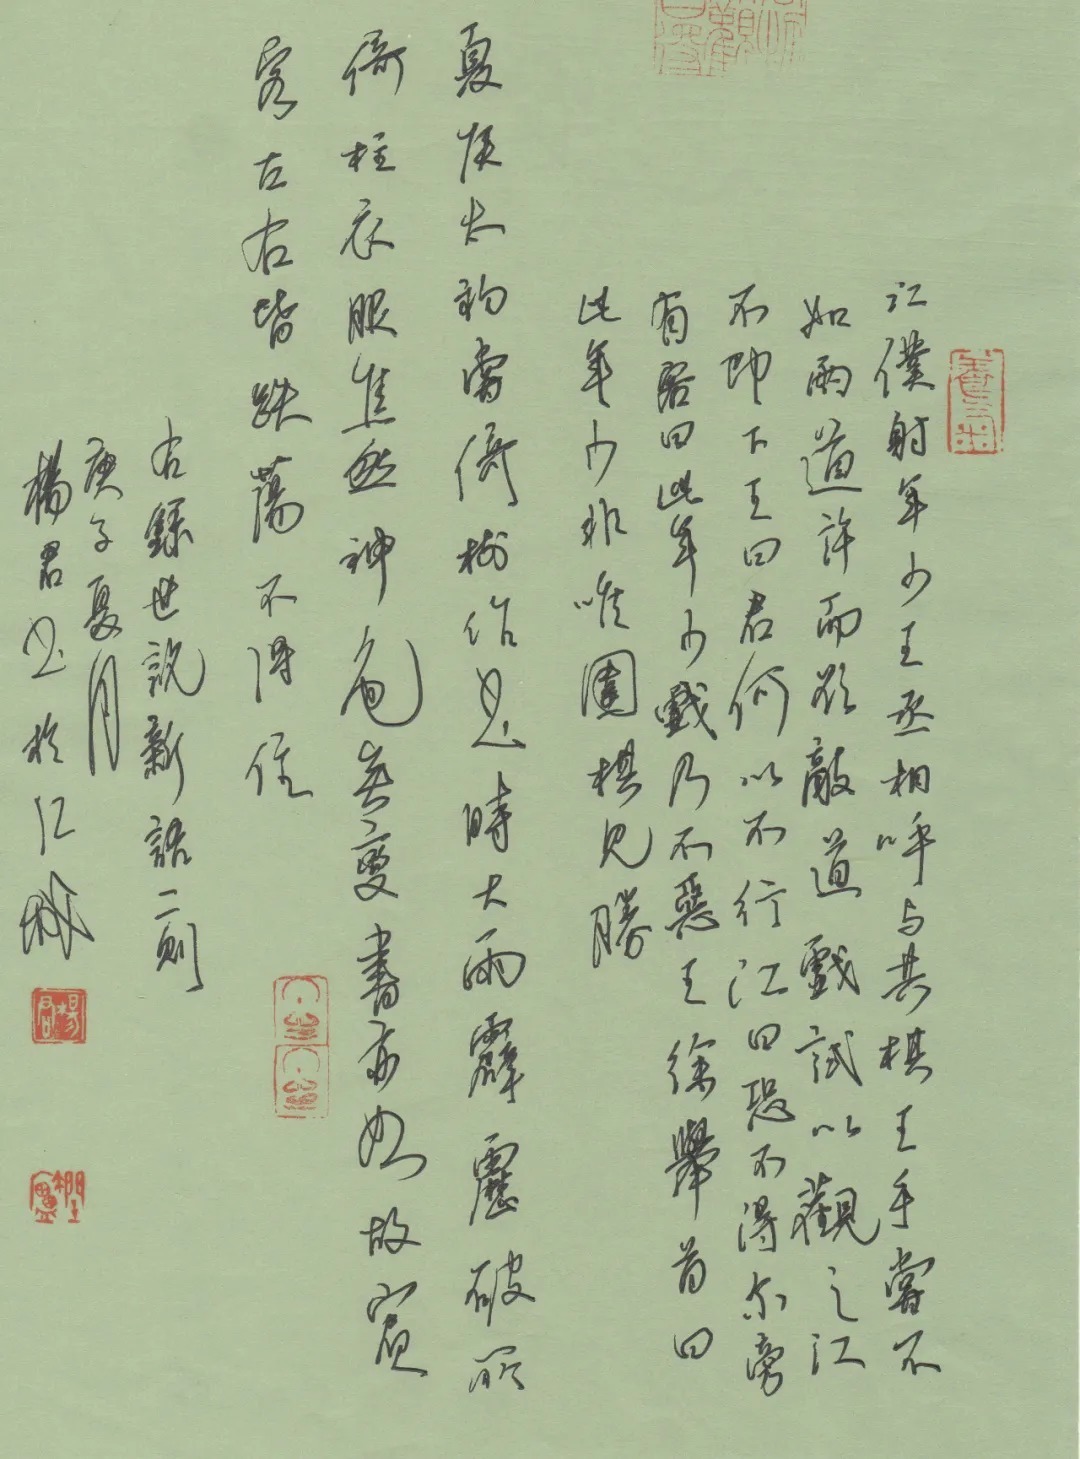 江僕射年少王丞相呼与共棋王手嘗不
如兩道許而欲敵道戲試以觀之江
不即下王曰君何以不行江曰恐不得尔旁
有客曰此年少戲乃不惡王徐舉首曰
此年少非唯圍棋見勝
夏侯太初嘗倚柱作書時大雨霹靂破所
倚柱衣服焦然神色無變書亦如故賓
客左右皆跌蕩不得住
右錄世說新語二則
庚子夏月
楊君書於江城
楊君